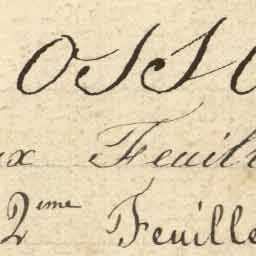 OSSO
ux Feuill
2ème Feuille